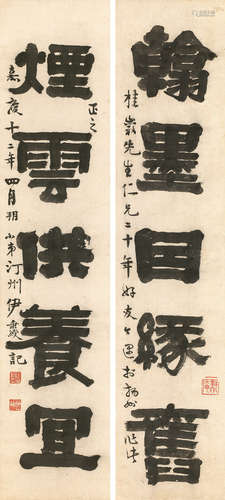 翰墨因緣舊
桂巖先生仁兄二十年好友
煙雲供養宜
正之
嘉慶十二年四月朔小弟汀州伊秉綬記